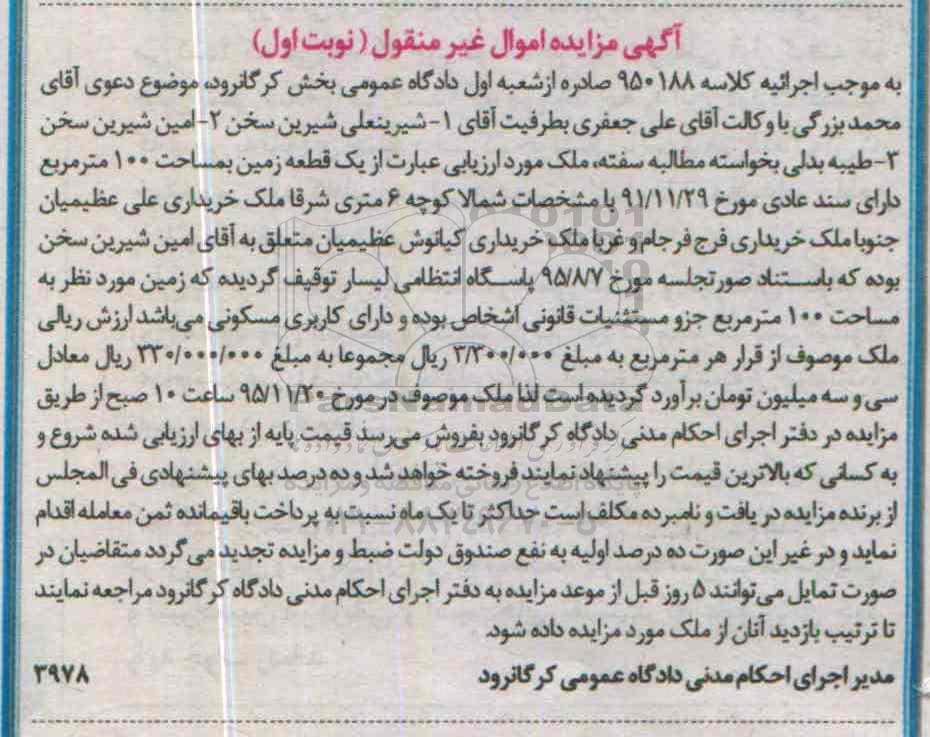 آگهی مزایده اموال غیر منقول (نوبت اول)
به موجب اجرائیه کلاسه ۹۵۰۱۸۸ صادره ازشعبه اول دادگاه عمومی بخش کرگانرود، موضوع دعوی آقای
محمد بزرگی با وکالت آقای علی جعفری بطرفیت آقای ۱-شیرینعلی شیرین سخن ۲-امین شیرین سخن
۳-طیبه بدلی بخواسته مطالبه سفته، ملک مورد ارزیابی عبارت از یک قطعه زمین بمساحت ۱۰۰ مترمربع
دارای سند عادی مورخ ۹۱/۱۱/۲۹ با مشخصات شمالا کوچه ۶ متری شرقا ملک خریداری علی عظیمیان
جنوبا ملک خریداری فرج فرجام و غربا ملک خریداری کیانوش عظیمیان متعلق به آقای امین شیرین سخن
بوده که باستناد صورتجلسه مورخ ۹۵/۸/۷ پاسگاه انتظامی لیسار توقیف گردیده که زمین مورد نظر به
مساحت ۱۰۰ مترمربع جزو مستثنیات قانونی اشخاص بوده و دارای کاربری مسکونی می‌باشد ارزش ریالی
ملک موصوف از قرار هر مترمربع به مبلغ ۳/۳۰۰/۰۰۰ ریال مجموعا به مبلغ ۳۳۰/۰۰۰/۰۰۰ ریال معادل
سی و سه میلیون تومان برآورد گردیده است لذا ملک موصوف در مورخ ۹۵/۱۱/۲۰ ساعت ۱۰ صبح از طریق
مزایده در دفتر اجرای احکام مدنی دادگاه کرگانرود بفروش می‌رسد قیمت پایه از بهای ارزیابی شده شروع و
به کسانی که بالاترین قیمت را پیشنهاد نمایند فروخته خواهد شد و ده درصد بهای پیشنهادی فی المجلس
از برنده مزایده دریافت و نامبرده مکلف است حداکثر تا یک ماه نسبت به پرداخت باقیمانده ثمن معامله اقدام
نماید و در غیر این صورت ده درصد اولیه به نفع صندوق دولت ضبط و مزایده تجدید می‌گردد متقاضیان در
صورت تمایل می‌توانند ۵ روز قبل از موعد مزایده به دفتر اجرای احکام مدنی دادگاه کرگانرود مراجعه نمایند
تا ترتیب بازدید آنان از ملک مورد مزایده داده شود.
مدیر اجرای احکام مدنی دادگاه عمومی کرگانرود ۳۹۷۸
ParsNamadData